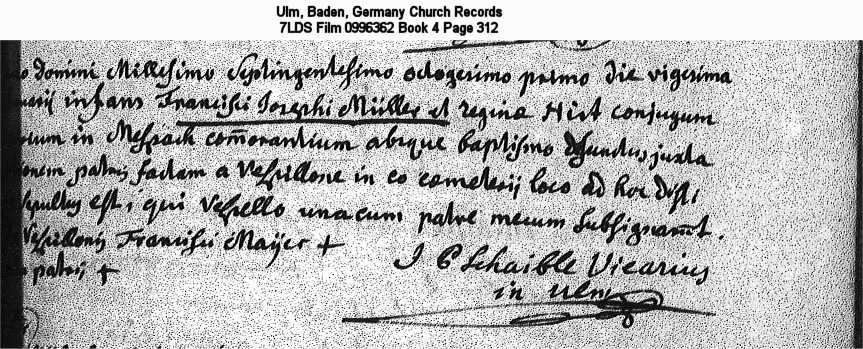 Ulm, Baden, Germany Church Records
7LDS Film 0996362 Book 4 Page 312
Domini Millesimo Septingentesimo octogesimo primo die vigesima
infans Francisci Josephi Müller et regina Hirt conjugum
in Mesbach com̄orantium absque baptismo defunctus, juxta
patris factam a Vespillone in eo cemeterij loco ad hoc
est, qui Vespillo una cum patre mecum subsignarūt.
Vespillonis Francisci Mayer +
patris +
J C Schaible Vicarius
in Ulm